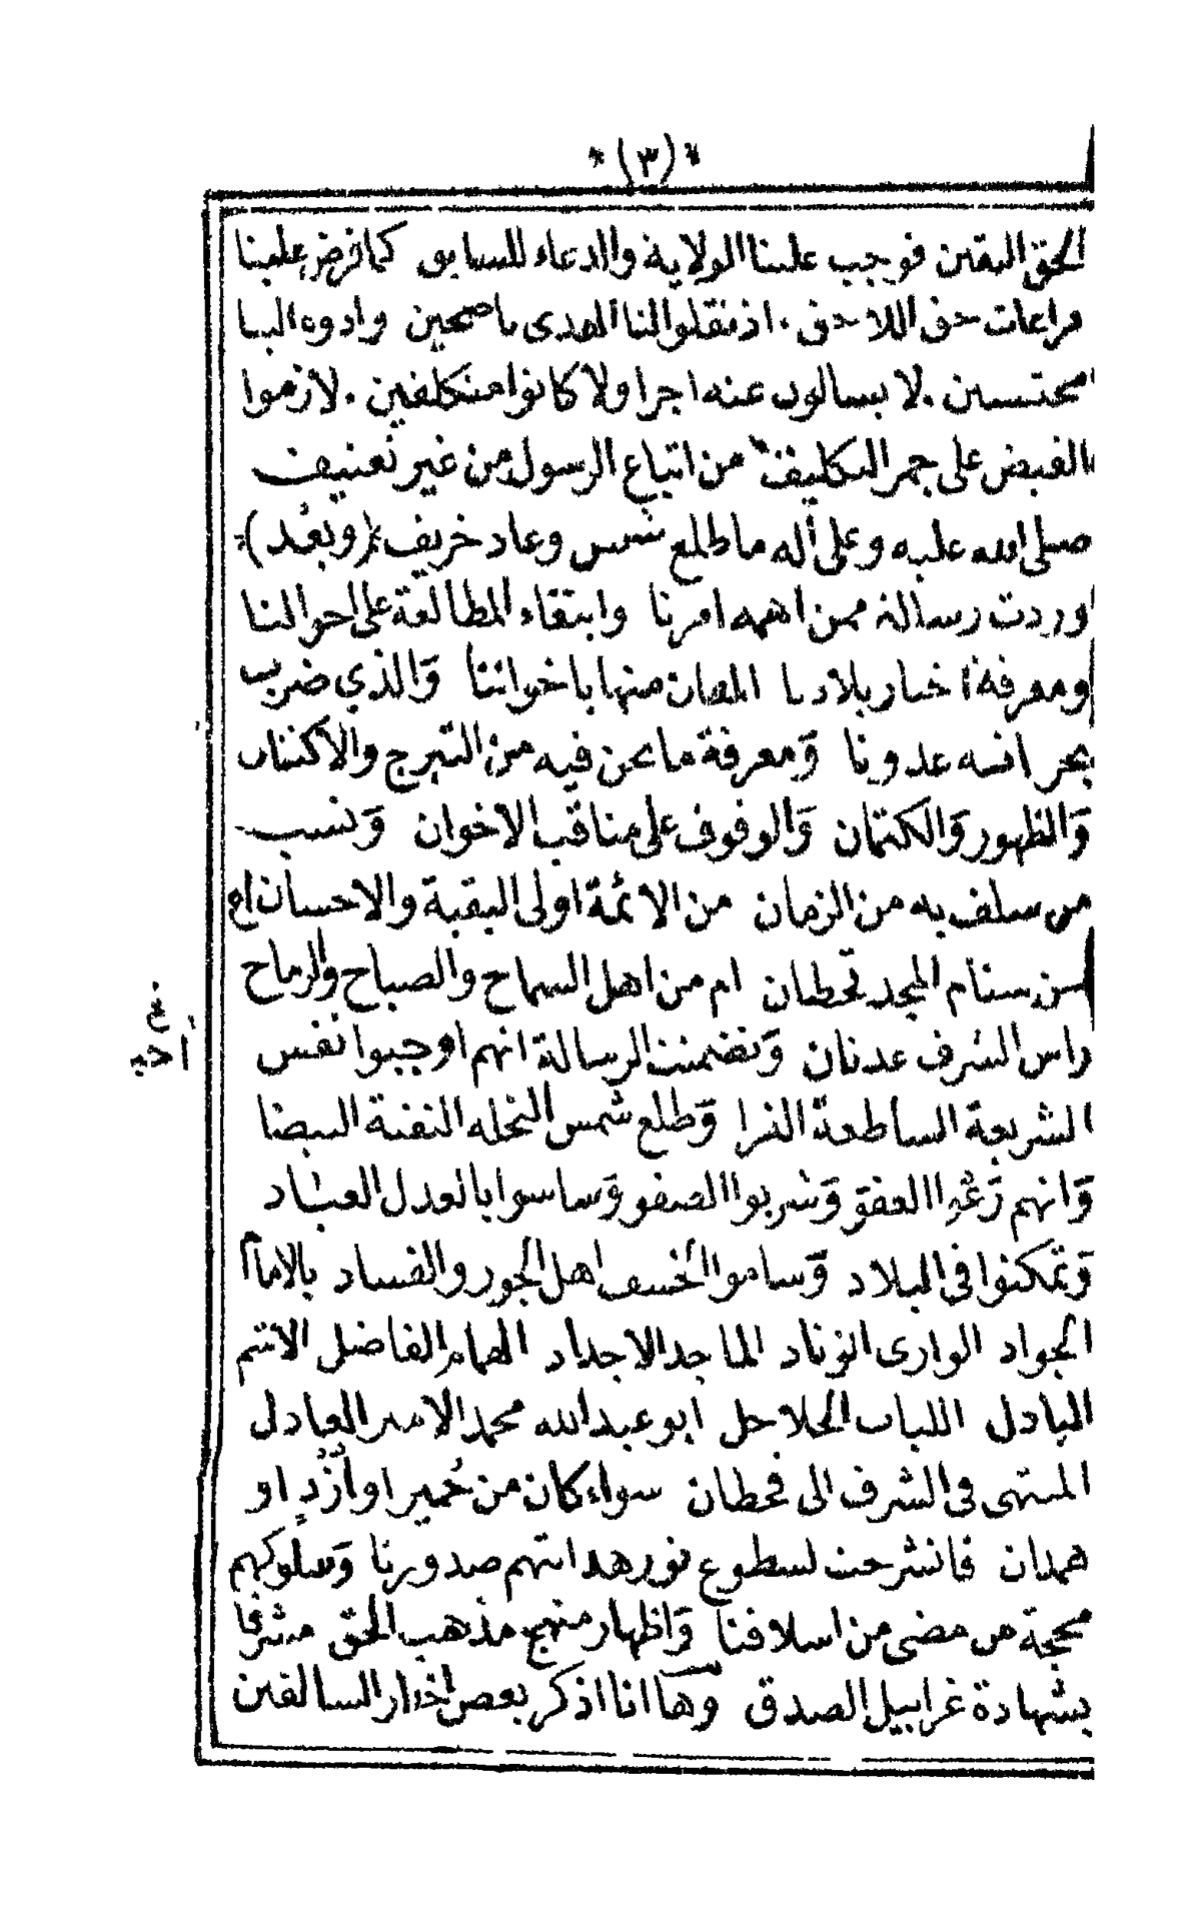 *(٣)*
الحق اليقين فوجب علينا الولاية والدعاء للسابق كما فرض علينا
مراعات حق اللاحق . اذ نقلوا لنا الهدى ناصحين وادوه الينا
محتسبين . لا يسالون عنه اجرا ولا كانوا متكلفين . لازموا
القبض على جمر التكليف من اتباع الرسول من غير تعنيف
صلى الله عليه وعلى أله ما طلع شمس وعاد خريف (وبعد)
وردت رسالة ممن اهمه امرنا وابتقاء المطالعة على احوالنا
ومعرفة اخبار بلادنا المصان منها باخواننا وَالذي ضرب
بجرانه عدونا وَمعرفة ما نحن فيه من التبرج والاكتنان
وَالظهور وَالكتمان وَالوقوف على مناقب الاخوان وَنسب
من سلف به من الزمان من الائمة اولى البقية والاحسان ام
من سنام المجد قحطان ام من اهل السماح والصباح والرماح
راس الشرف عدنان وَتضمنت الرسالة انهم اوجبوا نفس
نخ
أحيو
الشريعة الساطعة الغرا وَطلع شمس النحله النقية البيضا
وَانهم رَعَوا العفو وَشربوا الصفو وَساسوا بالعدل العباد
وَتمكنوا في البلاد وَساموا الخسف اهل الجور والفساد بالامام
الجواد الوارى الزناد الماجد الاجداد الهمام الفاضل الاتم
الباذل اللباب الحلاحل ابو عبدالله محمد الامير العادل
المنتهى في الشرف الى قحطان سواء كان من حُمير او أزْدٍ او
همدان فانشرحت لسطوع نور هدايتهم صدورنا وَسلوكهم
محجة من مضى من اسلافنا وَاظهار منهج مذهب الحق مشرقا
بشهادة غرابيل الصدق وها انا اذكر بعض اخبار السالفين